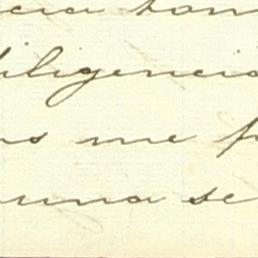 cia tom
diligencia
ns me f
una se